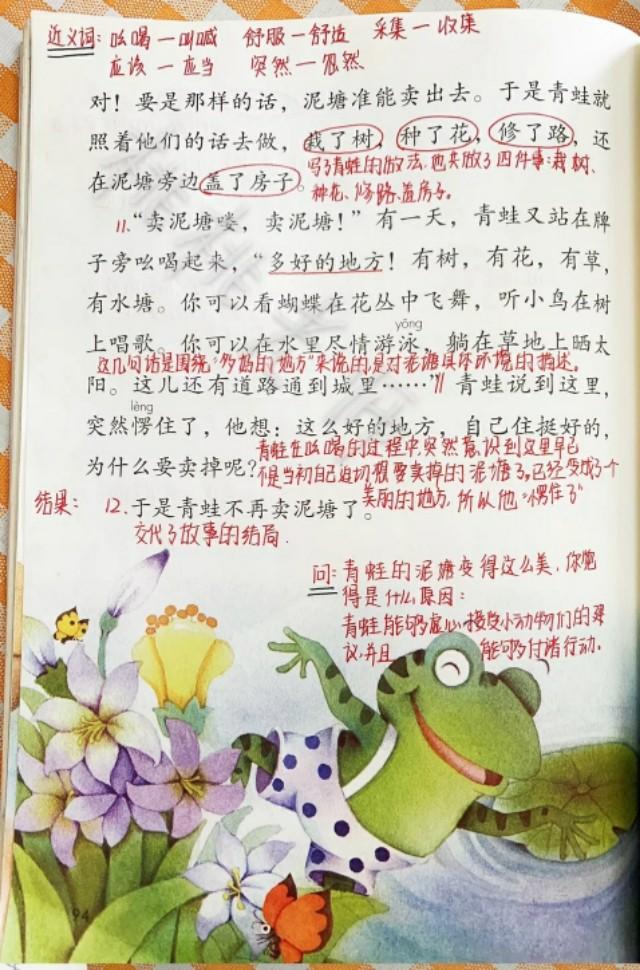 近义词：吆喝—叫喊 舒服—舒适 采集—收集
应该—应当 突然—忽然
对！要是那样的话，泥塘准能卖出去。于是青蛙就
照着他们的话去做，栽了树，种了花，修了路，还
写了青蛙的做法，也共做了四件事：栽树、
在泥塘旁边盖了房子。
种花、修路、盖房子。
11.“卖泥塘喽，卖泥塘！”有一天，青蛙又站在牌
子旁吆喝起来，“多好的地方！有树，有花，有草，
有水塘。你可以看蝴蝶在花丛中飞舞，听小鸟在树
yǒng
上唱歌。你可以在水里尽情游泳，躺在草地上晒太
这几句话是围绕“多好的地方”来说的，是对泥塘具体环境的描述。
阳。这儿还有道路通到城里……”//青蛙说到这里，
lèng
突然愣住了，他想：这么好的地方，自己住挺好的，
青蛙在吆喝的过程中，突然意识到这里早已
为什么要卖掉呢？
不是当初自己迫切想要卖掉的泥塘了，已经变成了个
结果：12.于是青蛙不再卖泥塘了。
美丽的地方，所以他“愣住了”
交代了故事的结局.
问：青蛙的泥塘变得这么美，你觉
得是什么原因：
青蛙能够虚心接受小动物们的建
议，并且能够付诸行动.
94